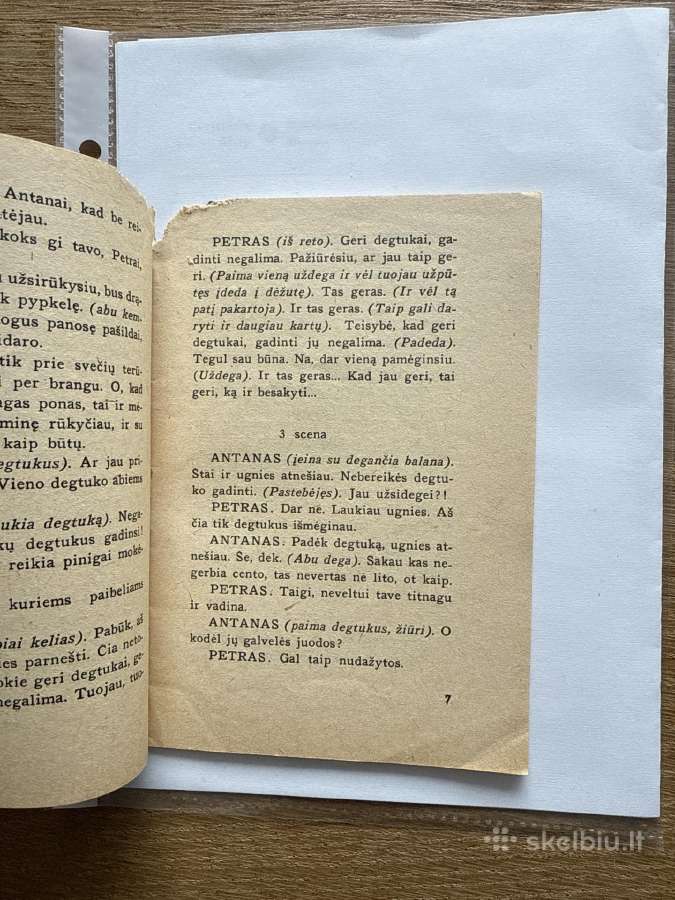 Antanai, kad be rei-
tėjau.
koks gi tavo, Petrai,
užsirūkysiu, bus drą-
k pypkelę. (abu kem.
ogus panosę pašildai,
idaro.
tik prie svečių terū-
i per brangu. O, kad
ngas ponas, tai ir mė-
minę rūkyčiau, ir su
kaip būtų.
egtukus). Ar jau pri-
Vieno degtuko abiems
ukia degtuką). Nega-
kų degtukus gadinsi!
reikia pinigai mokė-
kuriems paibeliams
piai kelias). Pabūk, aš
ies parnešti. Čia neto-
okie geri degtukai, ge-
negalima. Tuojau, tuo-
PETRAS (iš reto). Geri degtukai, ga-
dinti negalima. Pažiūrėsiu, ar jau taip ge-
ri. (Paima vieną uždega ir vėl tuojau užpū-
tęs įdeda į dėžutę). Tas geras. (Ir vėl tą
patį pakartoja). Ir tas geras. (Taip gali da-
ryti ir daugiau kartų). Teisybė, kad geri
degtukai, gadinti jų negalima. (Padeda).
Tegul sau būna. Na, dar vieną pamėginsiu.
(Uždega). Ir tas geras... Kad jau geri, tai
geri, ką ir besakyti...
3 scena
ANTANAS (įeina su degančia balana).
Štai ir ugnies atnešiau. Nebereikės degtu-
ko gadinti. (Pastebėjęs). Jau užsidegei?!
PETRAS. Dar ne. Laukiau ugnies. Aš
čia tik degtukus išmėginau.
ANTANAS. Padėk degtuką, ugnies at-
nešiau. Še, dek. (Abu dega). Sakau kas ne-
gerbia cento, tas nevertas nė lito, ot kaip.
PETRAS. Taigi, neveltui tave titnagu
ir vadina.
ANTANAS (paima degtukus, žiūri). O
kodėl jų galvelės juodos?
PETRAS. Gal taip nudažytos.
7
skelbiu.lt